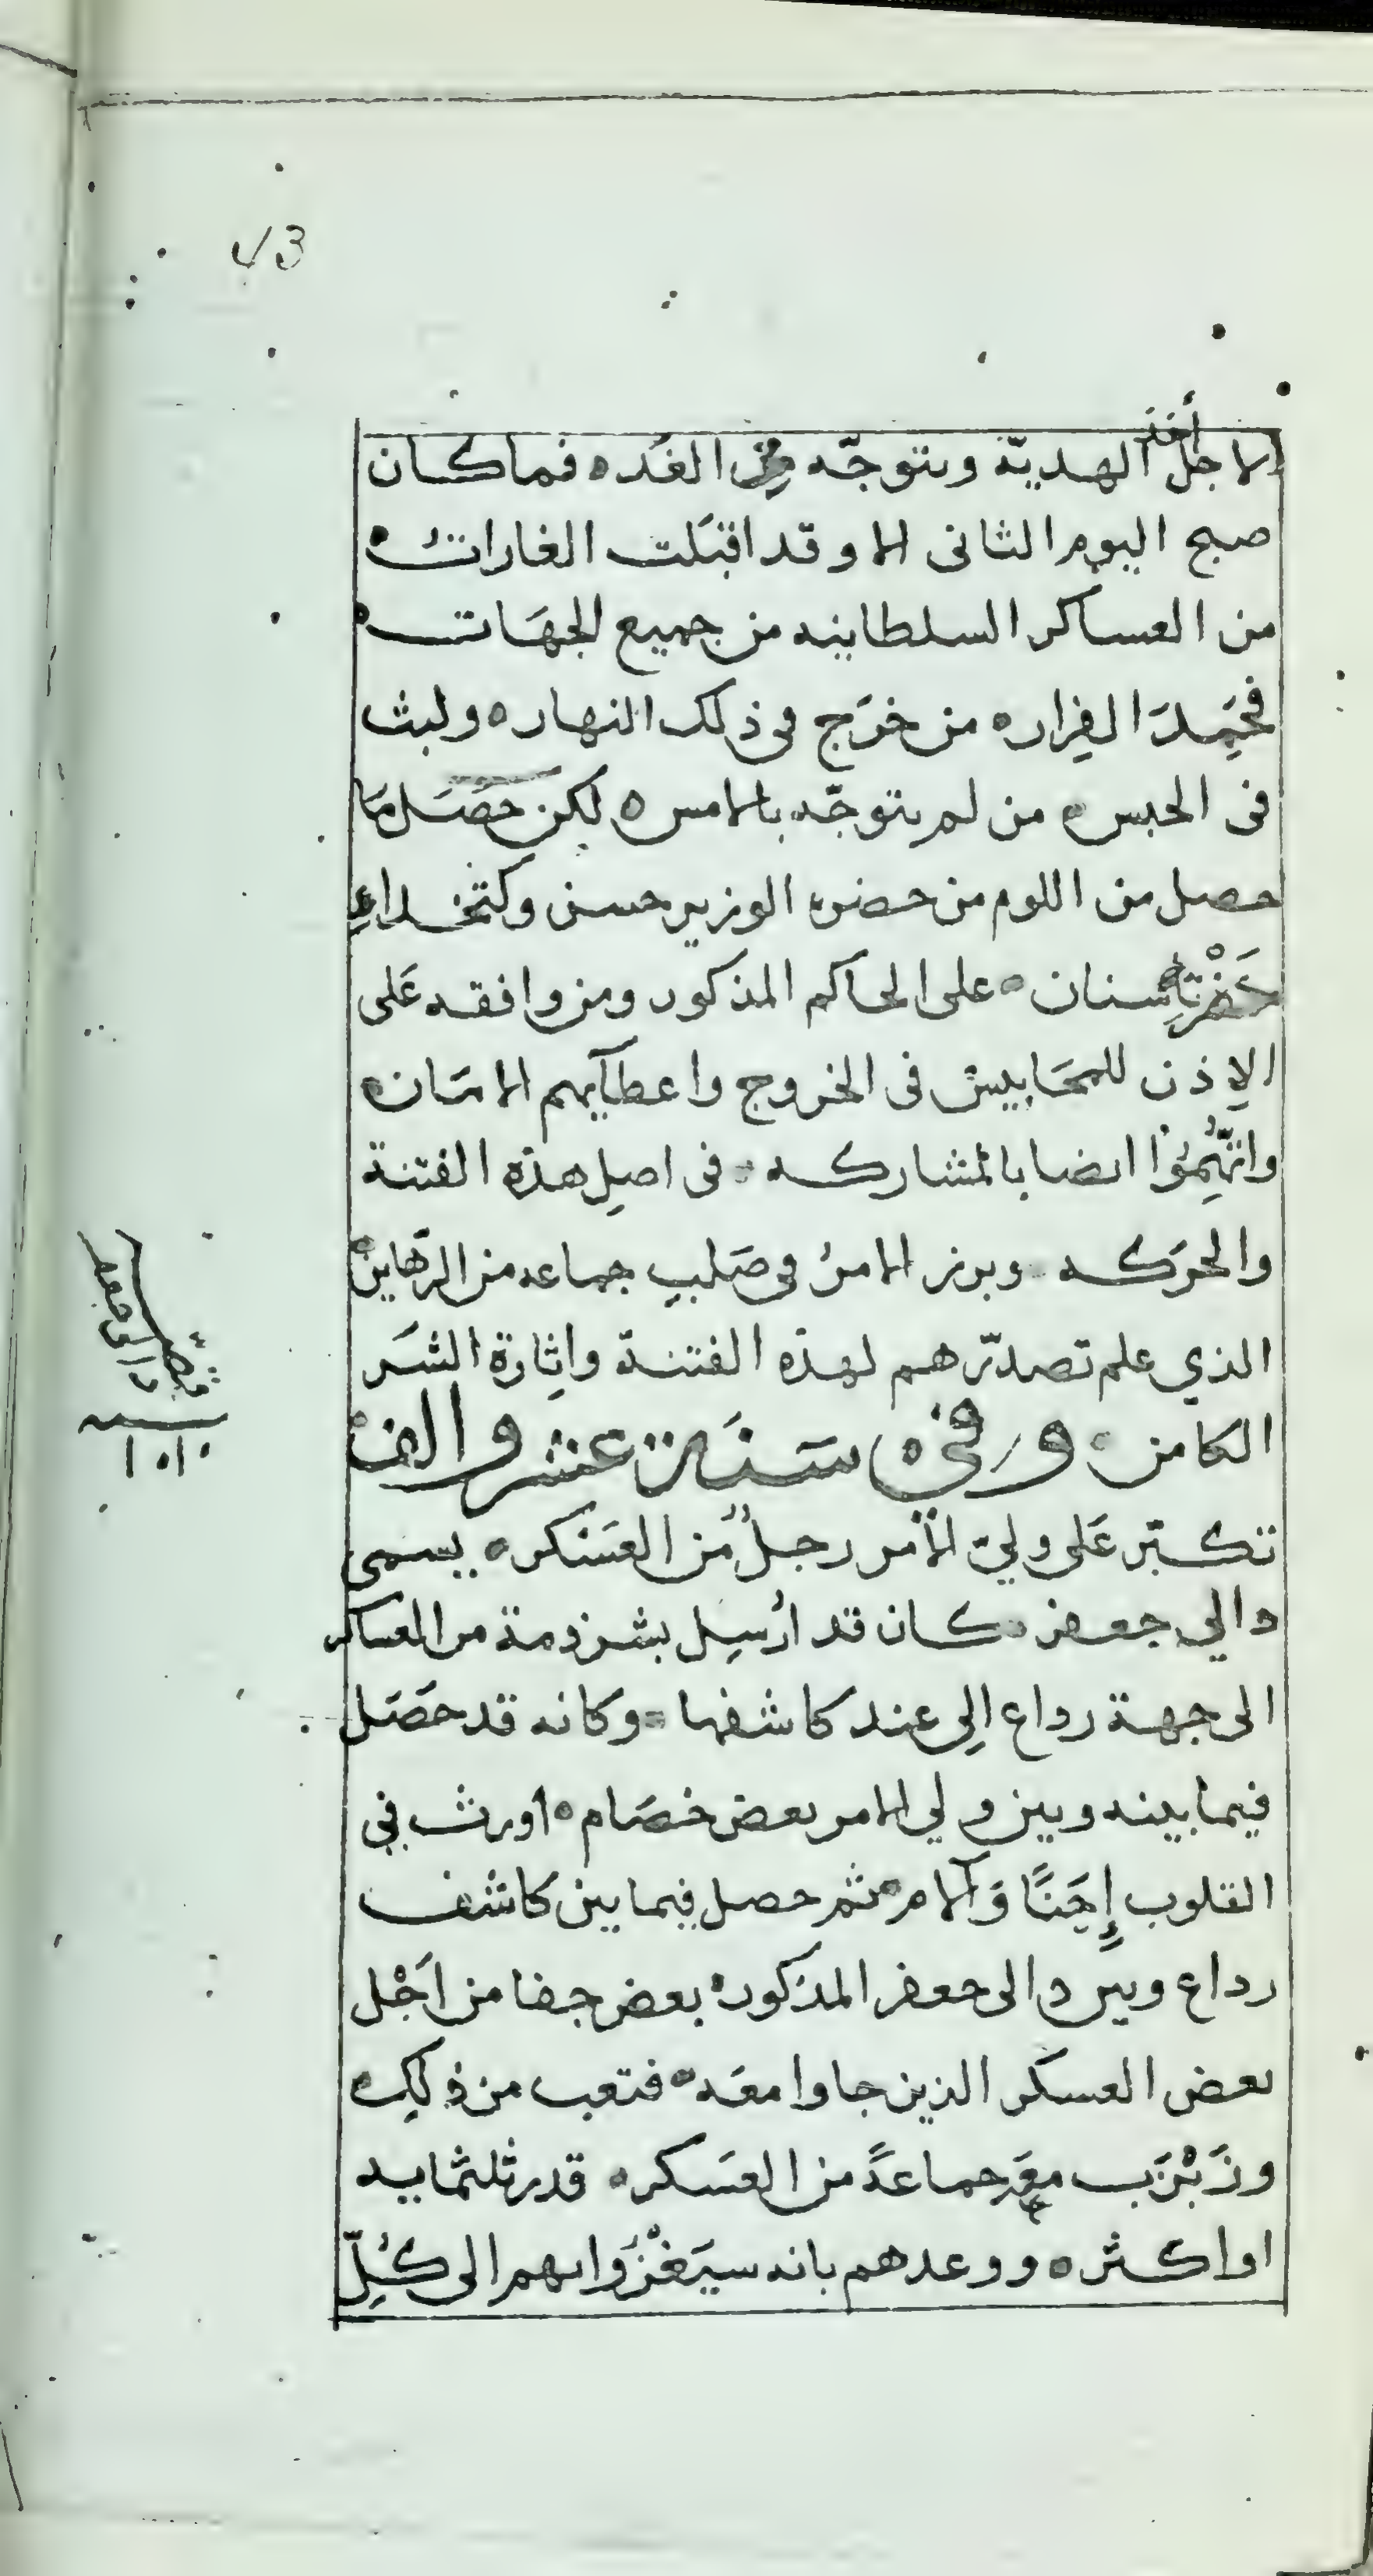 ٧٣
لاجل أخذ الهديّة ويتوجّه من الغَد ه فما كان
صبح اليوم الثانى الا وقد اقبَلت الغارات ه
من العساكر السلطانيه من جميع الجهَات ه
فحَمِدَ الفِرار ه من خرَج فى ذلك النهار ه ولبث
فى الحبس ه من لم يتوجّه بالامس ه لكن حصَل مَا
حصل من اللوم من حضرة الوزير حسن وكتخداء
حَضْرته سنان ه على الحاكم المذكور ومن وافقه عَلى
الإذن للمحَابيس فى الخروج واعطآيهم الامَان ه
واتُّهِمُوْا ايضا بالمشاركه ه فى اصلِ هذه الفتنة
والحرَكه وبرز الامرُ فى صَلبِ جماعه من الرّهاين ه
الذي علم تصدّرهم لهذه الفتنة واِثارة الشَر
الكامن ه وفي ه سَنَة عشر والف ه
تكبّر عَلى وليّ الأمر رجلٌ مَن العَسْكر ه يسمى
دالي جعفر ه كان قد ارُسِل بشرذمة من العساكر
الى جهة رداع اِلى عند كاشفها ه وكانه قد حصَل
فيما بينه وبين ولي الامر بعض خصَام ه اورث في
القلوب إِحَنًا وَآلام ه ثم حصل فيما بين كاشف
رداع وبين دالى جعفر المذكور ه بعض جفا من اَجْل
بعض العسكر الذين جاوا معَه ه فتعب من ذلِك ه
وزَبْزَب معَه جماعةً من العسَكر ه قدر ثلثمايه
او اكثر ه ووعدهم بانه سيَغْزُوا بهم الى كُلّ
قصّة
دالي جعفر
سنه
١٠١٠